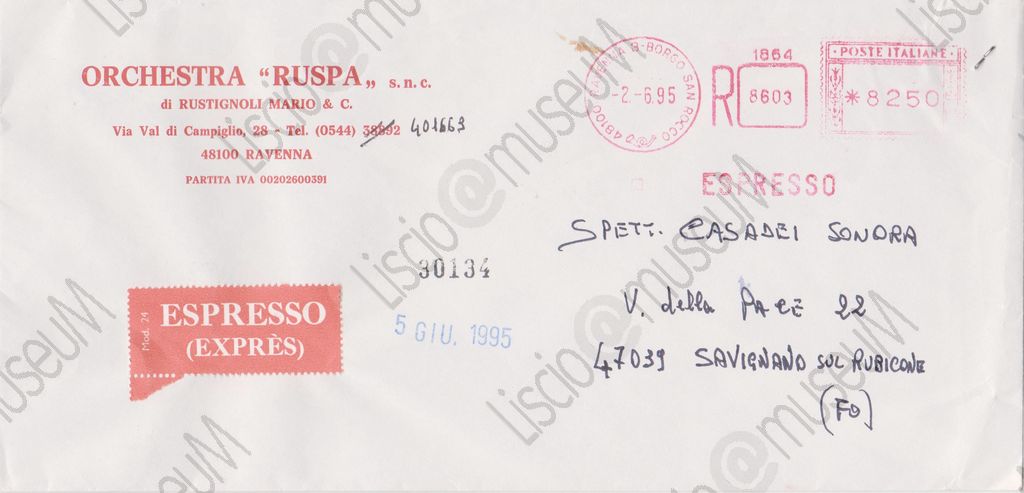 ORCHESTRA “RUSPA„ s.n.c.
di RUSTIGNOLI MARIO & C.
Via Val di Campiglio, 28 - Tel. (0544) 38892 401663
48100 RAVENNA
PARTITA IVA 00202600391
48100 RAVENNA 8-BORGO SAN ROCCO
-2.-6.95
1864
R 8603
POSTE ITALIANE
*8250
ESPRESSO
SPETT. CASADEI SONORA
V. della PACE 22
47039 SAVIGNANO SUL RUBICONE
(FO)
30134
5 GIU. 1995
Mod. 24
ESPRESSO
(EXPRÈS)
Liscio@museuM